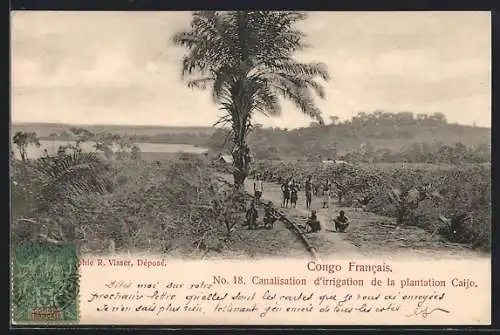 Congo Français.
phie R. Visser, Déposé.
No. 18. Canalisation d'irrigation de la plantation Caijo.
Dites moi sur votre
prochaine lettre quelles sont les cartes que je vous ai envoyées
Je n'en sais plus rien, tellement j'en envoie de tous les côtés
5